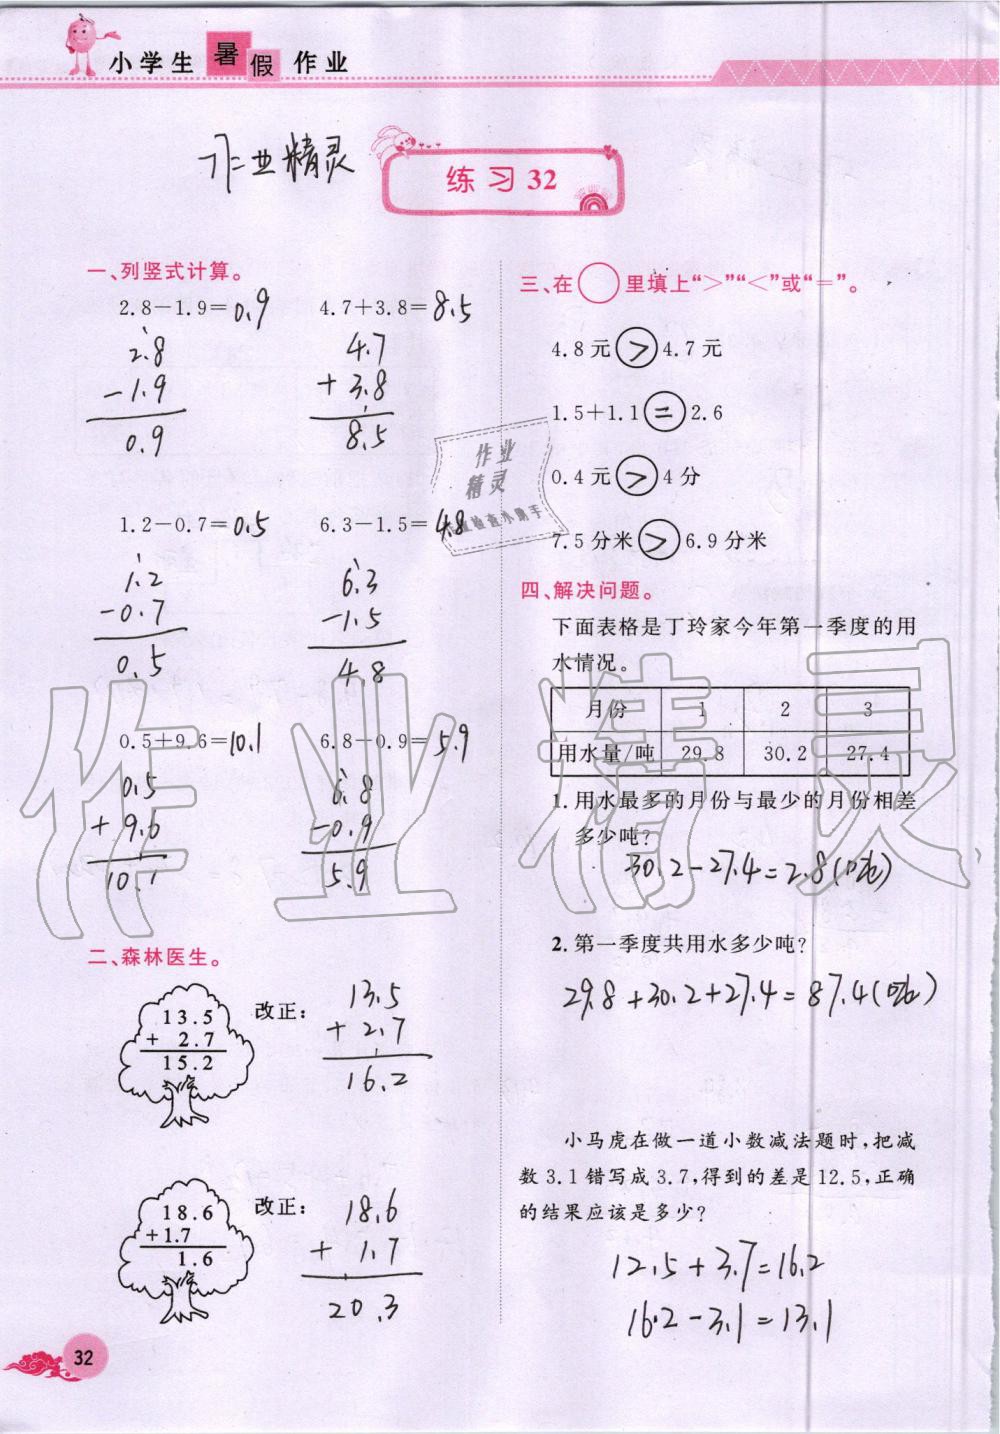 小学生暑假作业
作业精灵
练习32
一、列竖式计算。
2.8-1.9=0.9 4.7+3.8=8.5
2.8 4.7
-1.9 +3.8
0.9 8.5
1.2-0.7=0.5 6.3-1.5=4.8
1.2 6.3
-0.7 -1.5
0.5 4.8
0.5+9.6=10.1 6.8-0.9=5.9
0.5 6.8
+9.6 -0.9
10.1 5.9
二、森林医生。
13.5
+ 2.7
15.2
改正:
13.5
+ 2.7
16.2
18.6
+1.7
1.6
改正:
18.6
+ 1.7
20.3
32
三、在○里填上“>”“<”或“=”。
4.8元>4.7元
1.5+1.1=2.6
0.4元>4分
7.5分米>6.9分米
四、解决问题。
下面表格是丁玲家今年第一季度的用
水情况。
月份 1 2 3
用水量/吨 29.8 30.2 27.4
1.用水最多的月份与最少的月份相差
多少吨?
30.2-27.4=2.8(吨)
2.第一季度共用水多少吨?
29.8+30.2+27.4=87.4(吨)
小马虎在做一道小数减法题时,把减
数3.1错写成3.7,得到的差是12.5,正确
的结果应该是多少?
12.5+3.7=16.2
16.2-3.1=13.1
作业
精灵
作业检查小助手
作业精灵